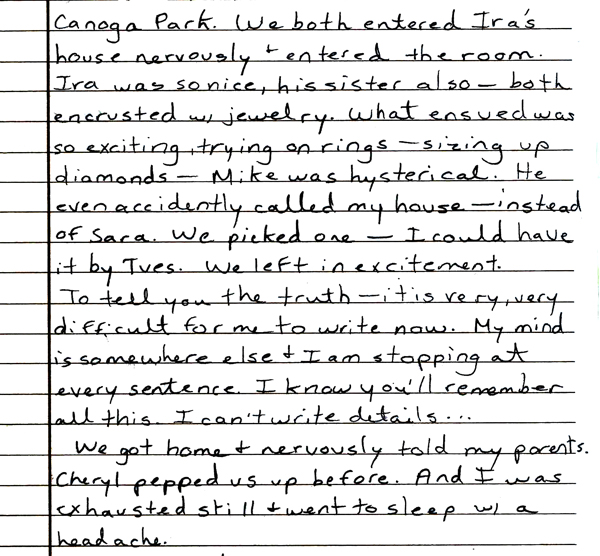 Canoga Park. We both entered Ira's
house nervously + entered the room.
Ira was so nice, his sister also – both
encrusted w/ jewelry. What ensued was
so exciting, trying on rings – sizing up
diamonds – Mike was hysterical. He
even accidently called my house – instead
of Sara. We picked one – I could have
it by Tves. We left in excitement.
To tell you the truth – it is very, very
difficult for me to write now. My mind
is somewhere else + I am stopping at
every sentence. I know you'll remember
all this. I can't write details...
We got home + nervously told my parents.
Cheryl pepped us up before. And I was
exhausted still + went to sleep w/ a
headache.